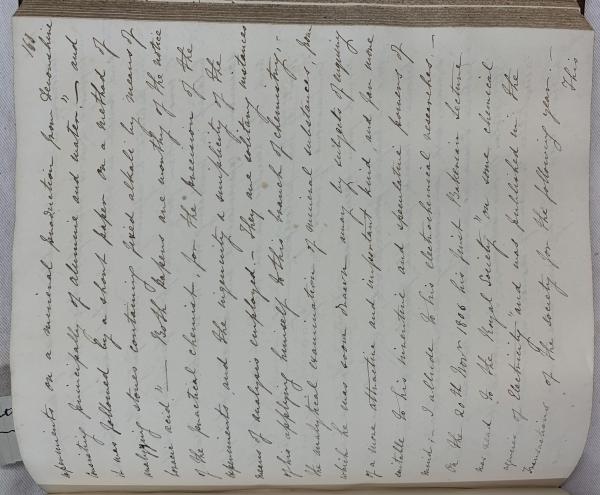 161
experiments on a mineral production from Devonshire
consisting principally of alumine and water:" – and
it was followed by a short paper "on a method of
analyzing stones containing fixed alkali by means of
boracic acid" – Both papers are worthy of the notice
of the practical chemist for the precision of the
experiments and the ingenuity & simplicity of the
means of analysis employed – They are solitary instances
of his applying himself to this branch of chemistry, –
the analytical examination of mineral substances, from
which he was soon drawn away by subjects of inquiry
of a more attractive and important kind and far more
suitable to his inventive and speculative powers of
mind; – I allude to his electrochemical researches. –
On the 20th Novr 1806 his first Bakerian Lecture
was read to the Royal Society, "on some chemical
agencies of Electricity" and was published in the
Transactions of the society for the following year. –
This